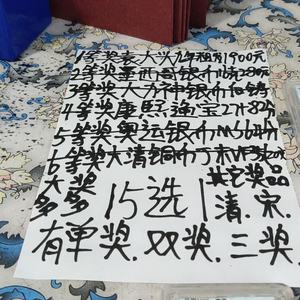 1等奖袁大头九年 1900元
2等奖墨西哥银币 280元
3等奖人力神银币
4等奖康熙通宝27-82分
5等奖奥运银币MS64分
6等奖大清铜币丁未VF
大奖 其它奖品
多多 15选1 清.宋.
有单奖.双奖.三奖